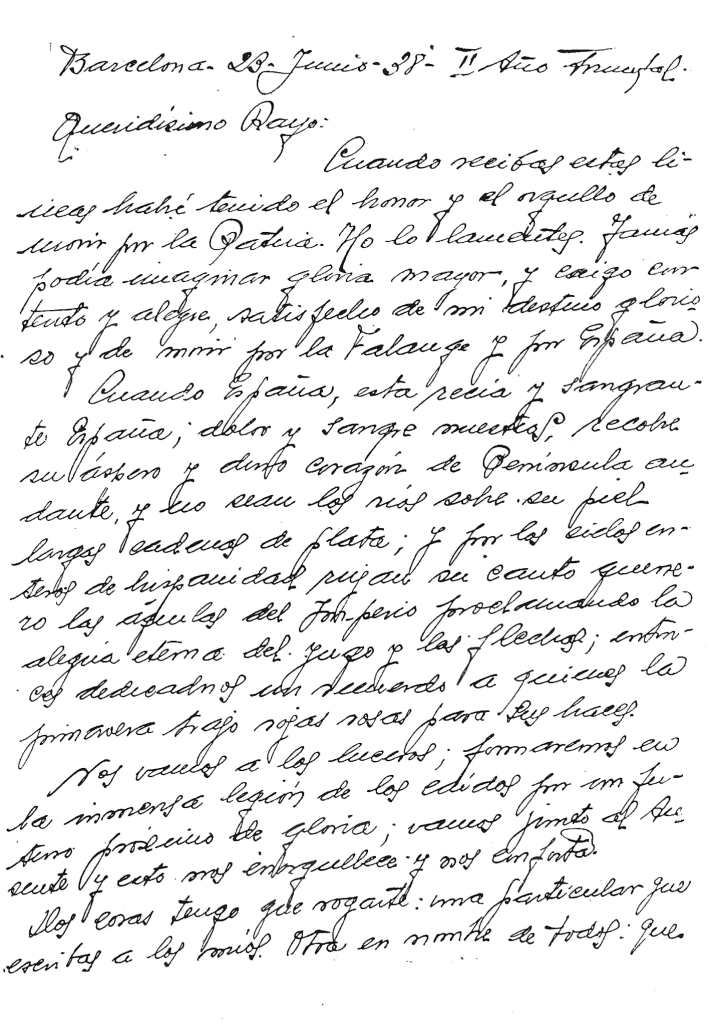 Barcelona - 23 - Junio - 38 - II Año Triunfal.
Queridísimo Rayo:
Cuando recibas estas li-
neas habré tenido el honor y el orgullo de
morir por la Patria. No lo lamentes. Jamás
podía imaginar gloria mayor, y caigo con-
tento y alegre, satisfecho de mi destino glorio-
so y de morir por la Falange y por España.
Cuando España, esta recia y sangran-
te España; dolor y sangre nuestros, recobre
su áspero y duro corazón de Península an-
dante, y no sean los ríos sobre su piel
largas cadenas de plata; y por los cielos en-
teros de hispanidad rujan su canto guerre-
ro las águilas del Imperio proclamando la
alegria eterna del yugo y las flechas; enton-
ces dedicadnos un recuerdo a quienes la
primavera trajo rojas rosas para sus haces.
Nos vamos a los luceros; formaremos en
la inmensa legión de los caídos por un fu-
turo próximo de gloria; vamos junto al Au-
sente y esto nos enorgullece y nos conforta.
Dos cosas tengo que rogarte: una particular que
escribas a los míos. Otra en nombre de todos: que